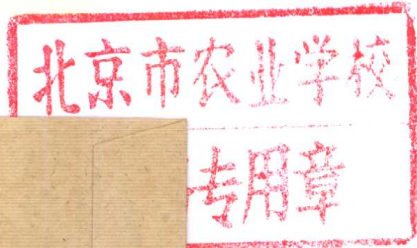 北京市农业学校
专用章